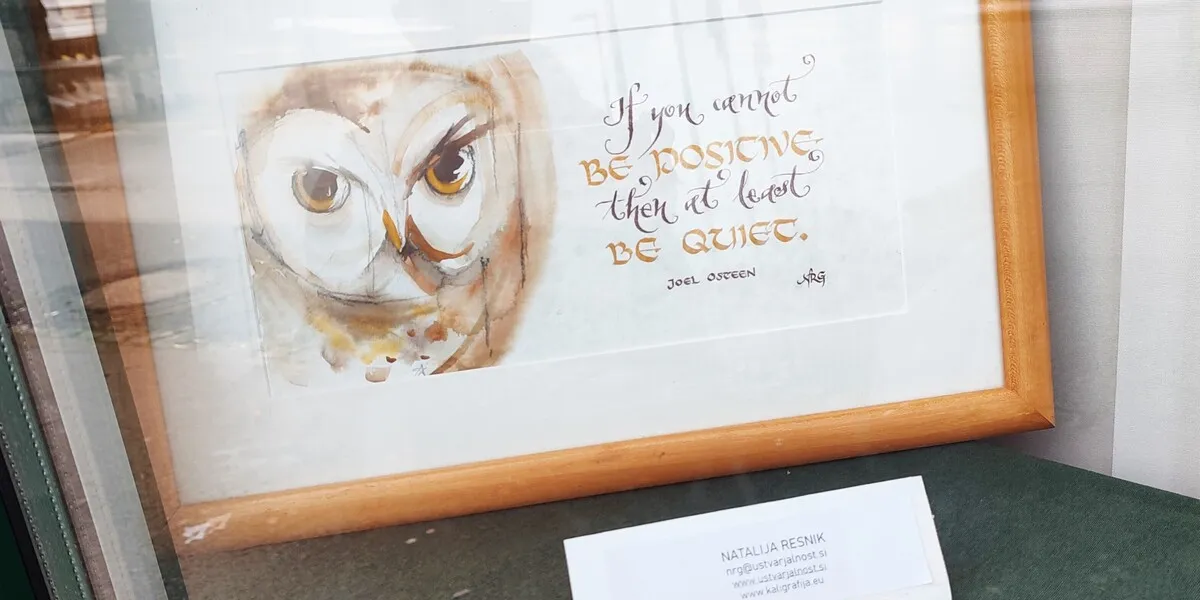 If you cannot
BE POSITIVE
then at least
BE QUIET.
JOEL OSTEEN
NRG
NATALIJA RESNIK
nrg@ustvarjalnost.si
www.ustvarjalnost.si
www.kaligrafija.eu